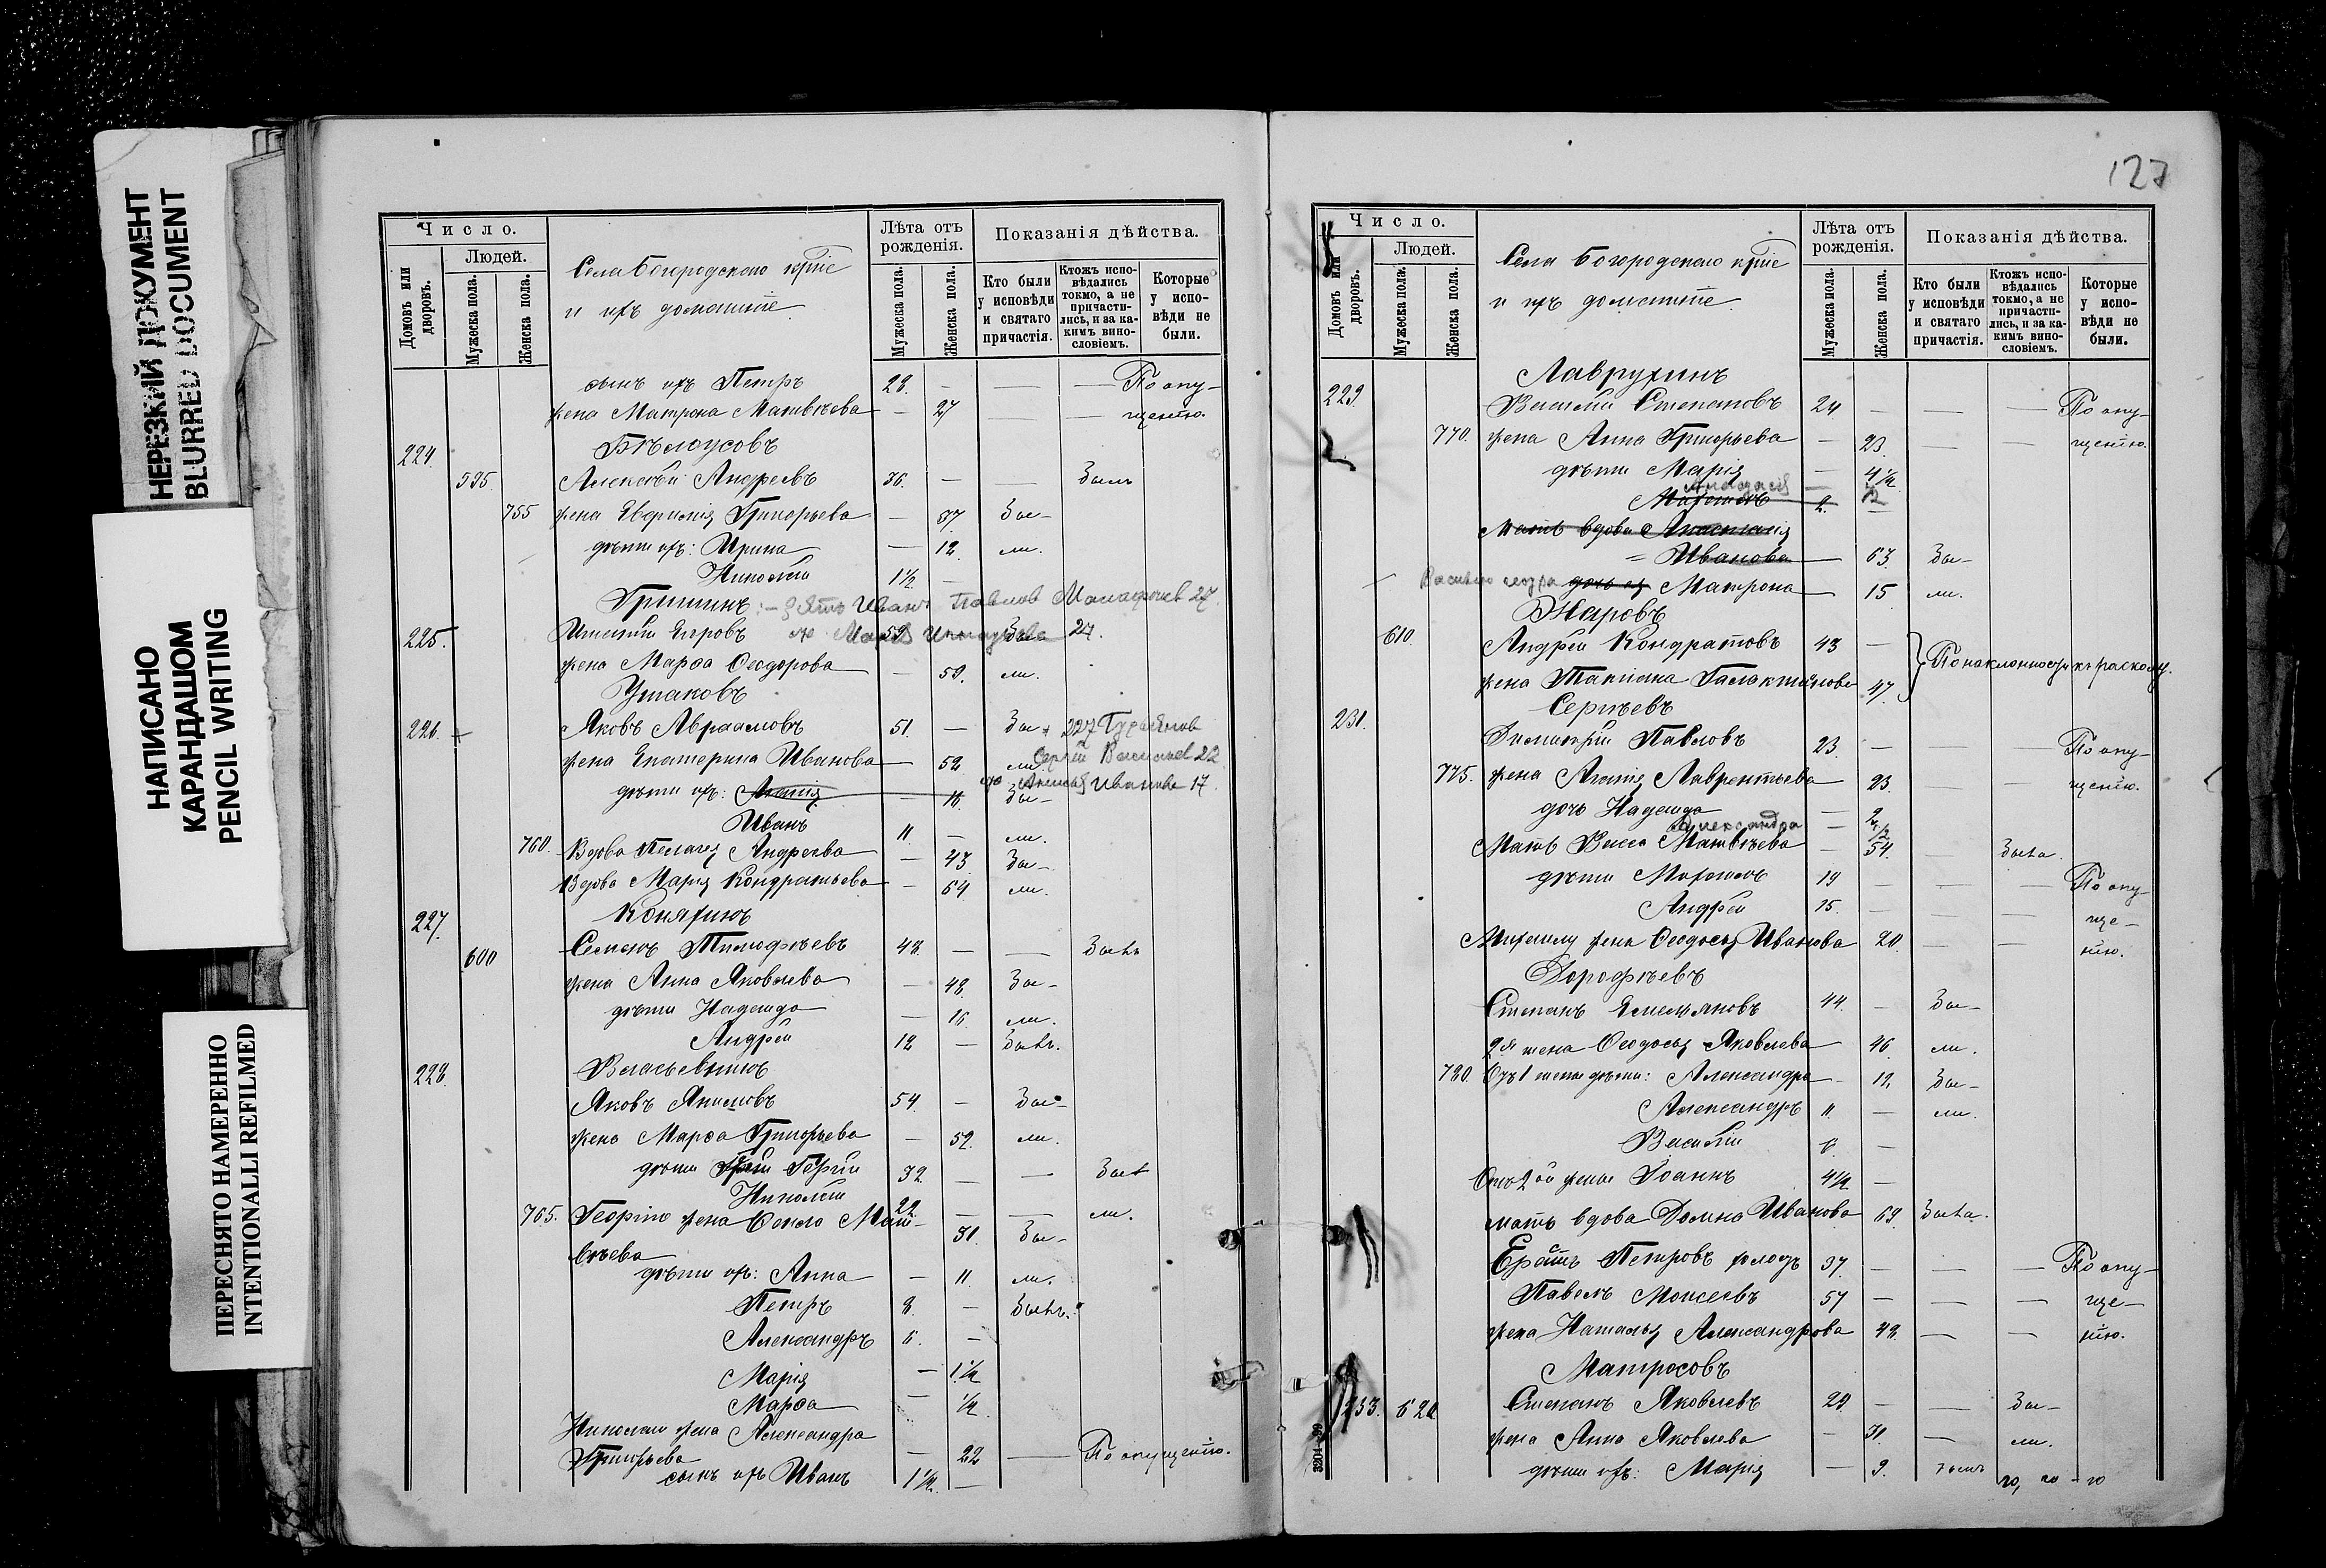 НЕРЕЗКИЙ ДОКУМЕНТ
BLURRED DOCUMENT
НАПИСАНО
КАРАНДАШОМ
PENCIL WRITING
ПЕРЕСНЯТО НАМЕРЕННО
INTENTIONALLI REFILMED
Число.
Людей.
Домовъ или дворовъ.
Мужеска пола.
Женска пола.
Села Богородскаго крттѣ
и ихъ домашніе
Лѣта отъ рожденія.
Мужеска пола.
Женска пола.
Показанія дѣйства.
Кто были у исповѣди и святаго причастія.
Ктожъ исповѣдались токмо, а не причастились, и за какимъ винословіемъ.
Которые у исповѣди не были.
сынъ ихъ Петръ 28. — — — По опу-
жена Матрона Матвѣева — 27 — — щенію.
224. Бѣлоусовъ
595. Алексѣй Андреевъ 36. — — былъ
755 жена Евфимія Григорьева — 37. Бы-
дѣти ихъ: Ирина — 12. ли.
Николай 1½ —
Гришинъ: — зять Иванъ Павлов 27
225. Игнатій Егоровъ 59 Бы- 24.
жена Марѳа Ѳеодорова — 59. ли.
Ушаковъ
226. Яковъ Авраамовъ 51. — Бы- 227
жена Екатерина Ивановна — 52 ли Сергѣй Васильев 22
дѣти ихъ: Агапія — 16. Бы- Иванова 17
Иванъ 11. — ли.
760. Вдова Пелагея Андреева — 43. Бы-
Вдова Марія Кондратьева — 64 ли.
227. Коняхинъ
600 Семенъ Тимофѣевъ 48. — — Былъ
жена Анна Яковлева — 48. Бы-
дѣти Надежда — 16. ли.
Андрей 12 — Былъ.
228. Власьевнинъ
Яковъ Якимовъ 54. — Бы-
жена Марѳа Григорьева — 52. ли.
дѣти Георгій 32 — — Бы
Николай 22. — — ли.
765. Георгію жена Ѳекла Мат- 31. Бы-
вѣева
дѣти ихъ: Анна — 11. ли.
Петръ 8. — Былъ.
Александръ 6. —
Марія — 1½
Марѳа — ½
Николаю жена Александра
Григорьева — 22 — По опущенію.
сынъ ихъ Иванъ 1½. —
127
Число.
Людей.
Домовъ или дворовъ.
Мужеска пола.
Женска пола.
Села Богородскаго крттѣ
и ихъ домашніе
Лѣта отъ рожденія.
Мужеска пола.
Женска пола.
Показанія дѣйства.
Кто были у исповѣди и святаго причастія.
Ктожъ исповѣдались токмо, а не причастились, и за какимъ винословіемъ.
Которые у исповѣди не были.
Лаврухинъ
229. Василій Степановъ 24 — — — По опу-
770. жена Анна Григорьева — 23. — — щенію.
дѣти Марія — 4½
2.
Мать вдова Анастасія
Иванова — 63. Бы-
Василію сестра дочь ея Матрона — 15 ли.
Жаровъ
610. Андрей Кондратовъ 43 — По наклонности къ расколу.
жена Татіана Галактіонова 47.
231. Сергѣевъ
Димитрій Павловъ 23 — — По опу-
775. жена Агапія Лаврентьева 23. — — щенію.
дочь Надежда — 2
Александра — ½
Мать Васса Матвѣева — 54. — Была.
дѣти 19 — — — По опу-
Андрей 15. — — — ще-
жена Ѳеодосья Иванова 20. — — нію.
Дорофѣевъ
Степанъ Емельяновъ 44. — Бы-
2я жена Ѳеодосья Яковлева 46. ли.
780. Отъ 1 жены дѣти: Александра — 12. Бы-
Александръ 11. — ли.
Василій 6. —
Отъ 2ой жены Іоаннъ 4½ —
мать вдова Домна Иванова 69. Была.
Петровъ холост 37. — — — По опу-
Павелъ Моисеевъ 57 — — — ще-
жена Наталья Александрова 48. — — нію.
Матросовъ
233. 620 Степанъ Яковлевъ 29. — — Бы-
жена Анна Яковлева — 31. — ли.
дѣти ихъ: Марія — 9.
3204—99